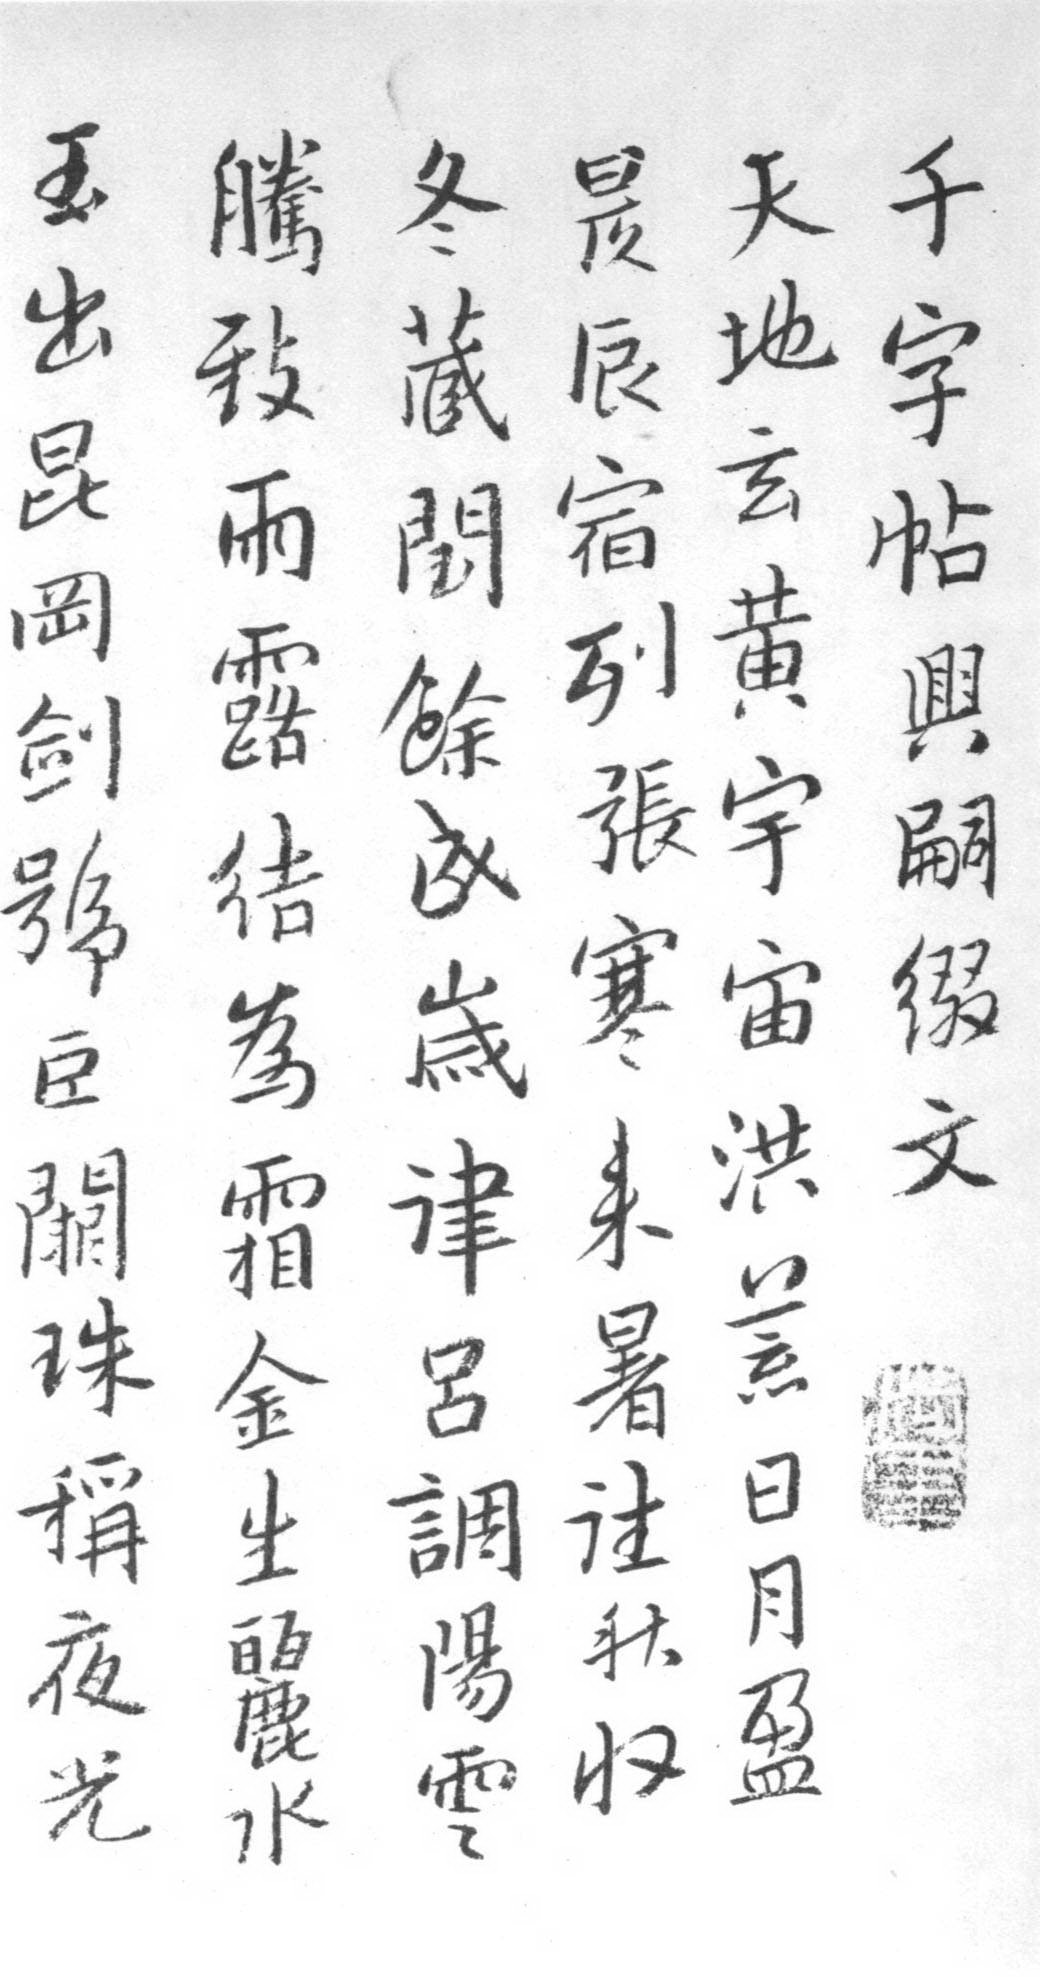 千字帖興嗣綴文
天地玄黃宇宙洪荒日月盈
昃辰宿列張寒来暑往秋收
冬蔵閏餘成歲律呂調陽雲
騰致雨露結為霜金生麗水
玉出昆岡劍號巨闕珠稱夜光